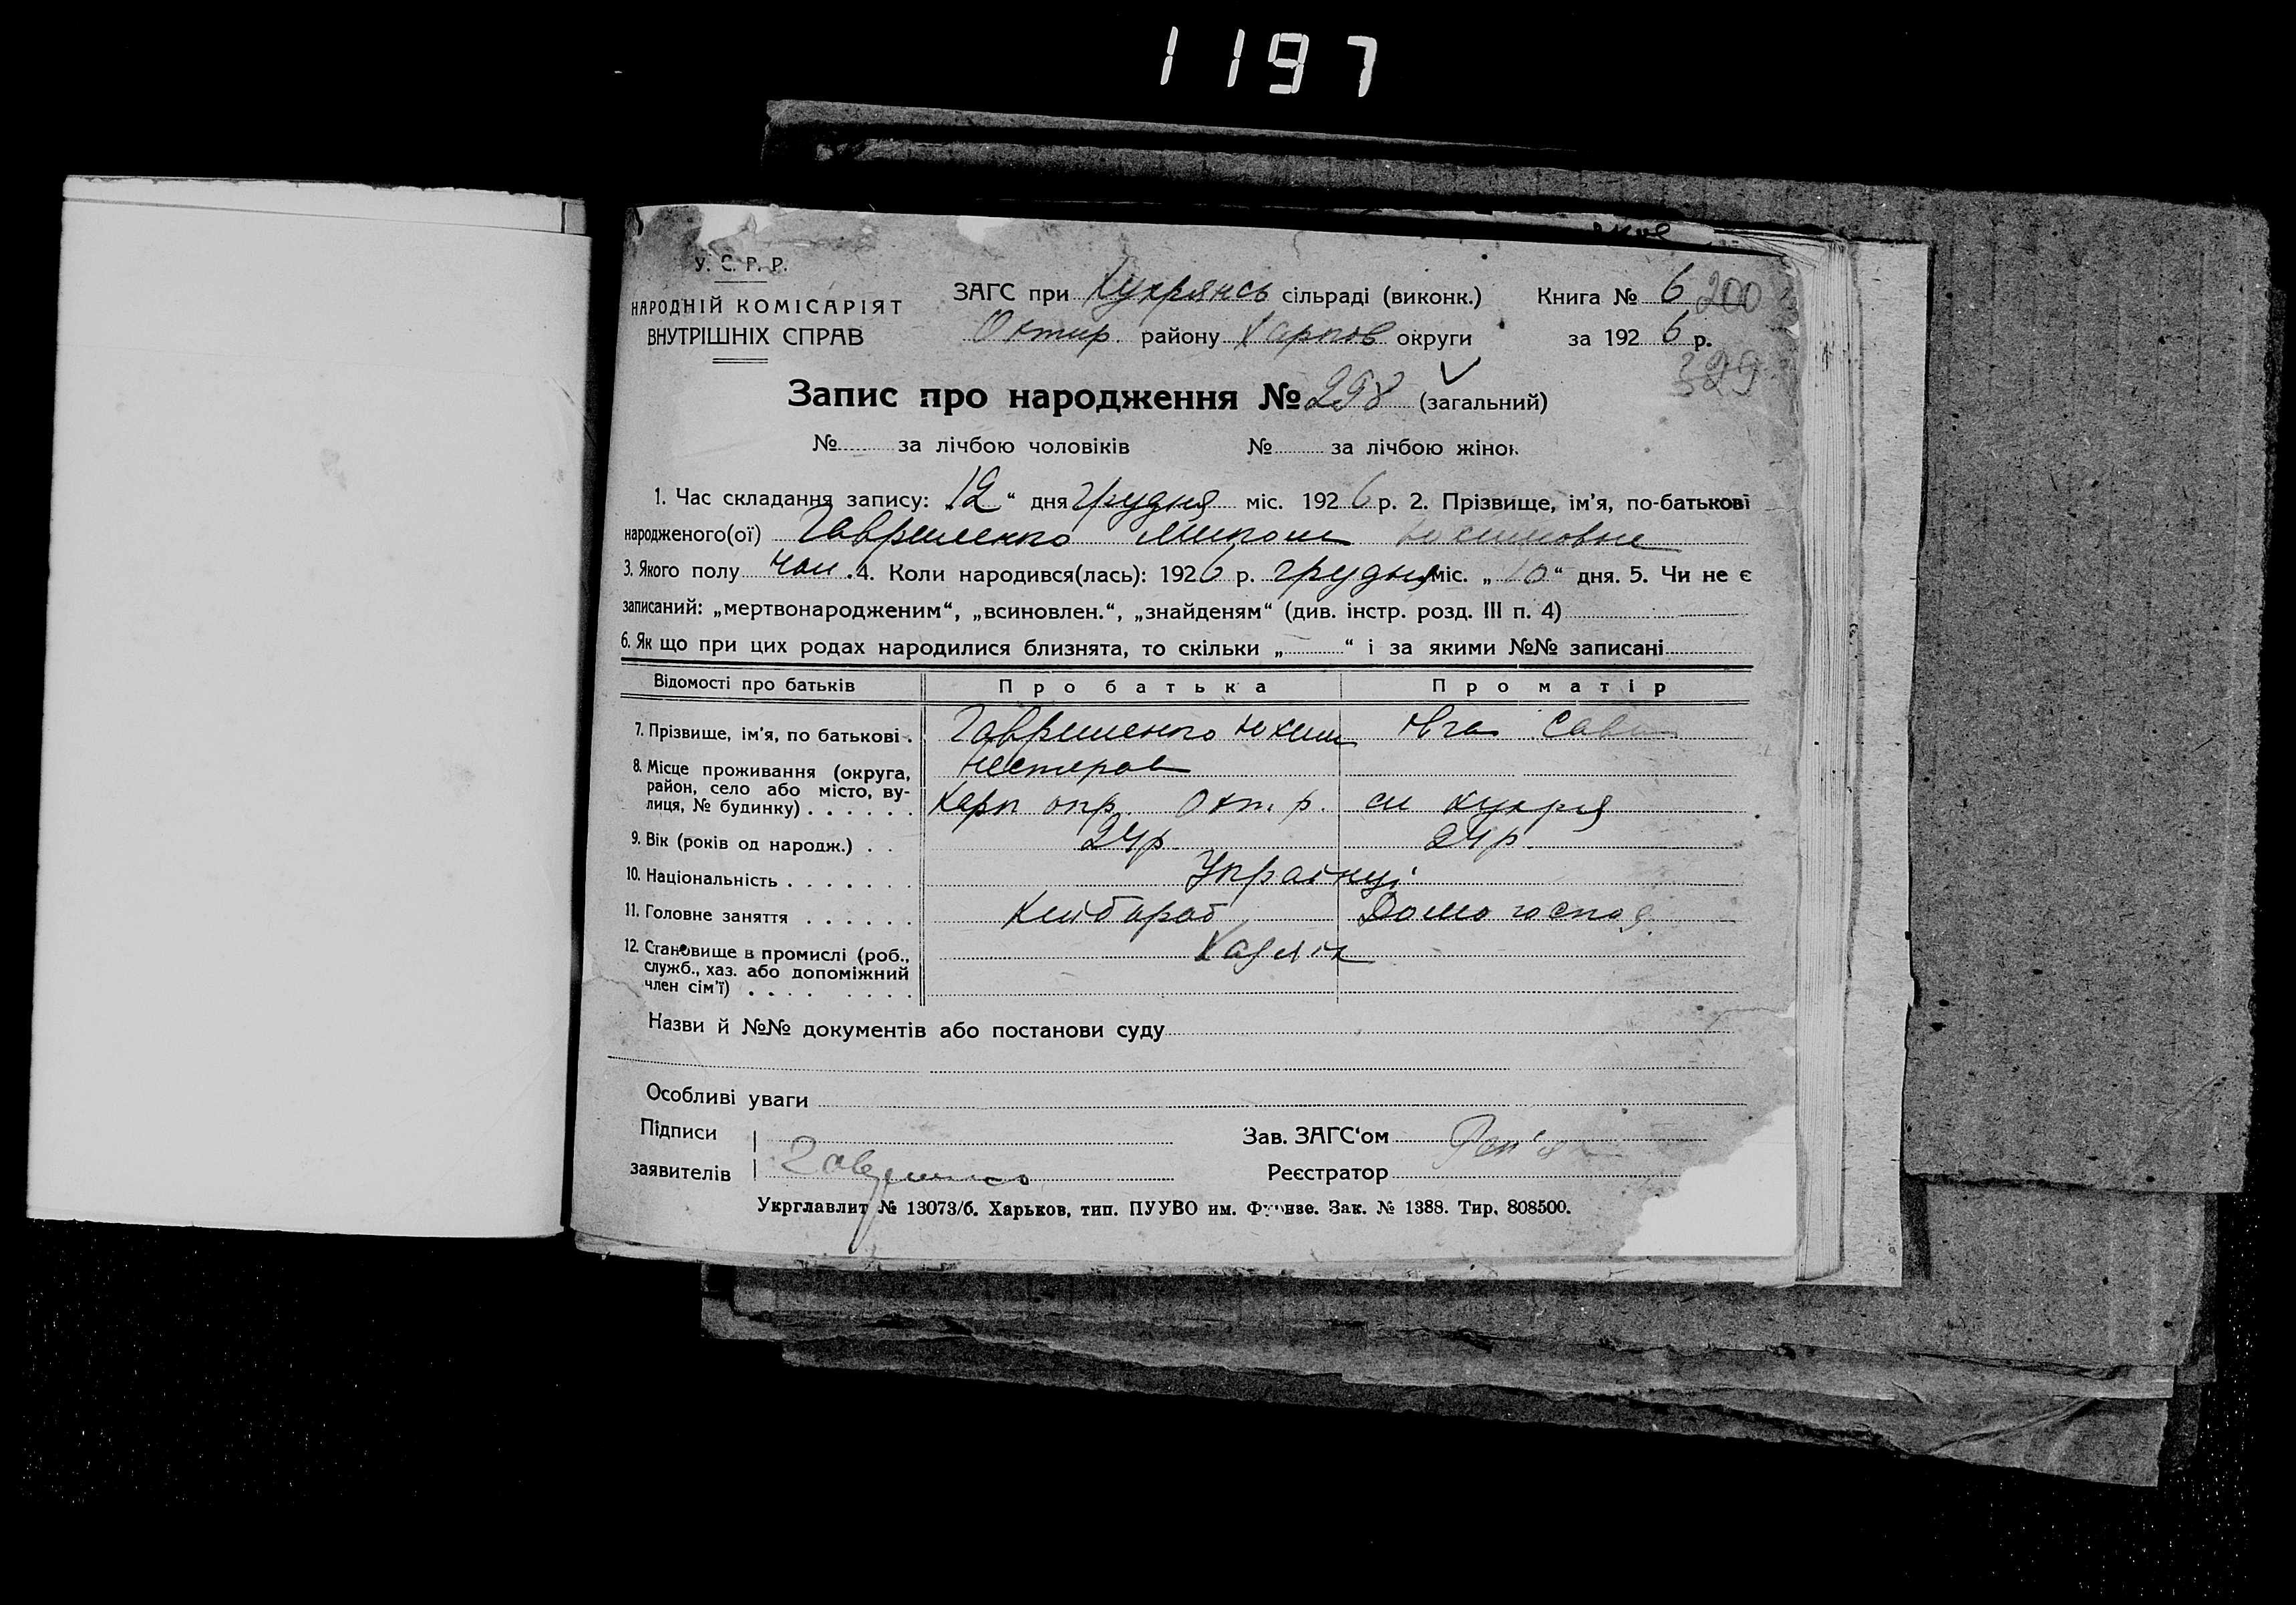 1197
У. С. Р. Р.
НАРОДНІЙ КОМІСАРІЯТ
ВНУТРІШНІХ СПРАВ
ЗАГС при Кухрянсь сільраді (виконк.)
Октир. району Харков округи
Книга № 6 200
за 1926 р.
329
Запис про народження № 298 (загальний)
№ за лічбою чоловіків № за лічбою жінок
1. Час складання запису: „12“ дня грудня міс. 1926 р. 2. Прізвище, ім'я, по-батькові
народженого(ої) Гавришенко Микола
3. Якого полу чол. 4. Коли народився(лась): 1926 р. грудня міс. „10“ дня. 5. Чи не є
записаний: „мертвонародженим“, „всиновлен.“, „знайденям“ (див. інстр. розд. III п. 4)
6. Як що при цих родах народилися близнята, то скільки „ “ і за якими №№ записані
Відомості про батьків Про батька Про матір
7. Прізвище, ім'я, по батькові . Гавришенко Юхим
Нестеров
8. Місце проживання (округа,
район, село або місто, ву-
лиця, № будинку) . . . . . . Харк окр. Окт. р. сл Кухря
9. Вік (років од народж.) . . 24р 24р.
10. Національність . . . . . . . Українці
11. Головне заняття . . . . . . Хлібороб Домо господ.
12. Становище в промислі (роб., Хазяїн
служб., хаз. або допоміжний
член сім'ї) . . . . . . . .
Назви й №№ документів або постанови суду
Особливі уваги
Підписи
заявителів
Зав. ЗАГС'ом
Реєстратор
Укрглавлит № 13073/б. Харьков, тип. ПУУВО им. Фрунзе. Зак. № 1388. Тир. 808500.